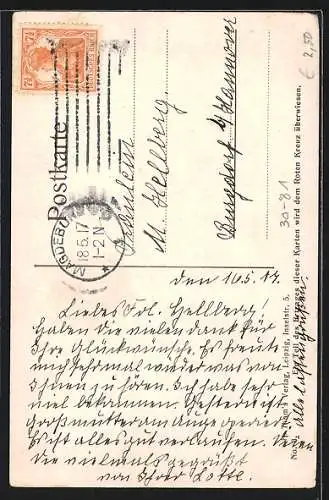 Postkarte
7½
MAGDEBURG
18.5.17
1-2 N
Fräulein
M. Hellberg.
Burgdorf b/Hannover
€ 2,50
30-81
den 16.5.17.
Liebes Frl. Hellberg!
Haben Sie vielen dank für
Ihre Glückwünsche. Es freute
mich sehr mal wieder was von
Ihnen zu hören. Ich habe sehr
viel bekannten. Gestern ist
Großmutter am Auge operiert
Es ist alles gut verlaufen. Seien
Sie vielmals gegrüßt
von Ihrer Lotte.
Verlag, Leipzig, Inselstr. 5.
des Ertrages dieser Karten wird dem Roten Kreuz überwiesen.